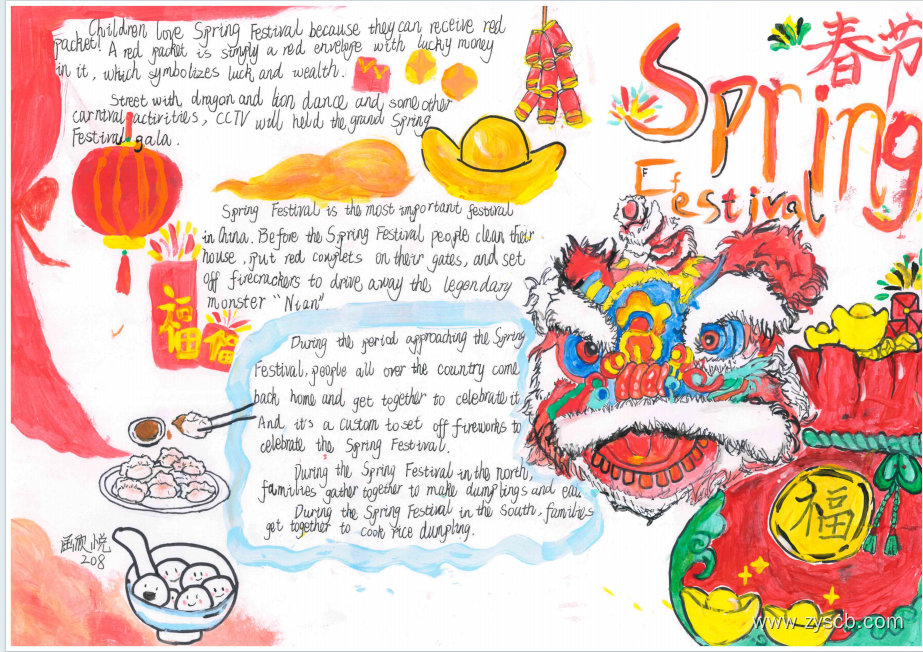 Children love Spring Festival because they can receive red
packet! A red packet is simply a red envelope with lucky money
in it, which symbolizes luck and wealth.
Street with dragon and lion dance and some other
carnival activities, CCTV will held the grand Spring
Festival gala.
春节
Spring
Festival
Spring Festival is the most important festival
in China. Before the Spring Festival people clean their
house, put red couplets on their gates, and set
off firecrackers to drive away the legendary
monster "Nian"
福
福
During the period approaching the Spring
Festival, people all over the country come
back home and get together to celebrate it.
And it's a custom to set off fireworks to
celebrate the Spring Festival.
During the Spring Festival in the north,
families gather together to make dumplings and eat.
During the Spring Festival in the South, families
get together to cook rice dumpling.
福
208
www.zyscb.com